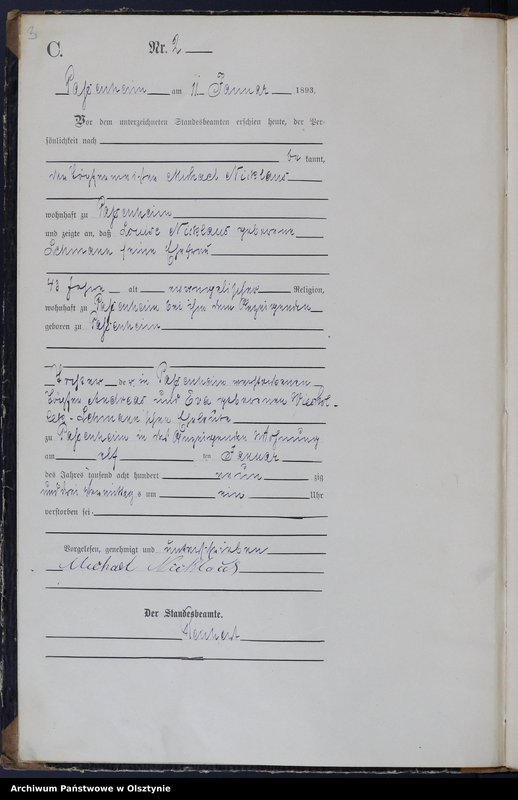 3
C.
Nr. 2
am 11 Januar 1893.
Vor dem unterzeichneten Standesbeamten erschien heute, der Per-
sönlichkeit nach
be kannt,
der Michael Nicklaus
wohnhaft zu
und zeigte an, daß Louise Nicklaus geborene
Lehmann seine Ehefrau
43 Jahre alt evangelischer Religion,
wohnhaft zu bei ihm dem Anzeigenden
geboren zu
Tochter der in verstorbenen
Andreas und Eva geborenen
Lehmann'schen Eheleute
zu in des Anzeigenden Wohnung
am elf ten Januar
des Jahres tausend acht hundert neun zig
und drei Vormittags um ein Uhr
verstorben sei.
Vorgelesen, genehmigt und unterschrieben
Michael Nicklaus
Der Standesbeamte.
Archiwum Państwowe w Olsztynie